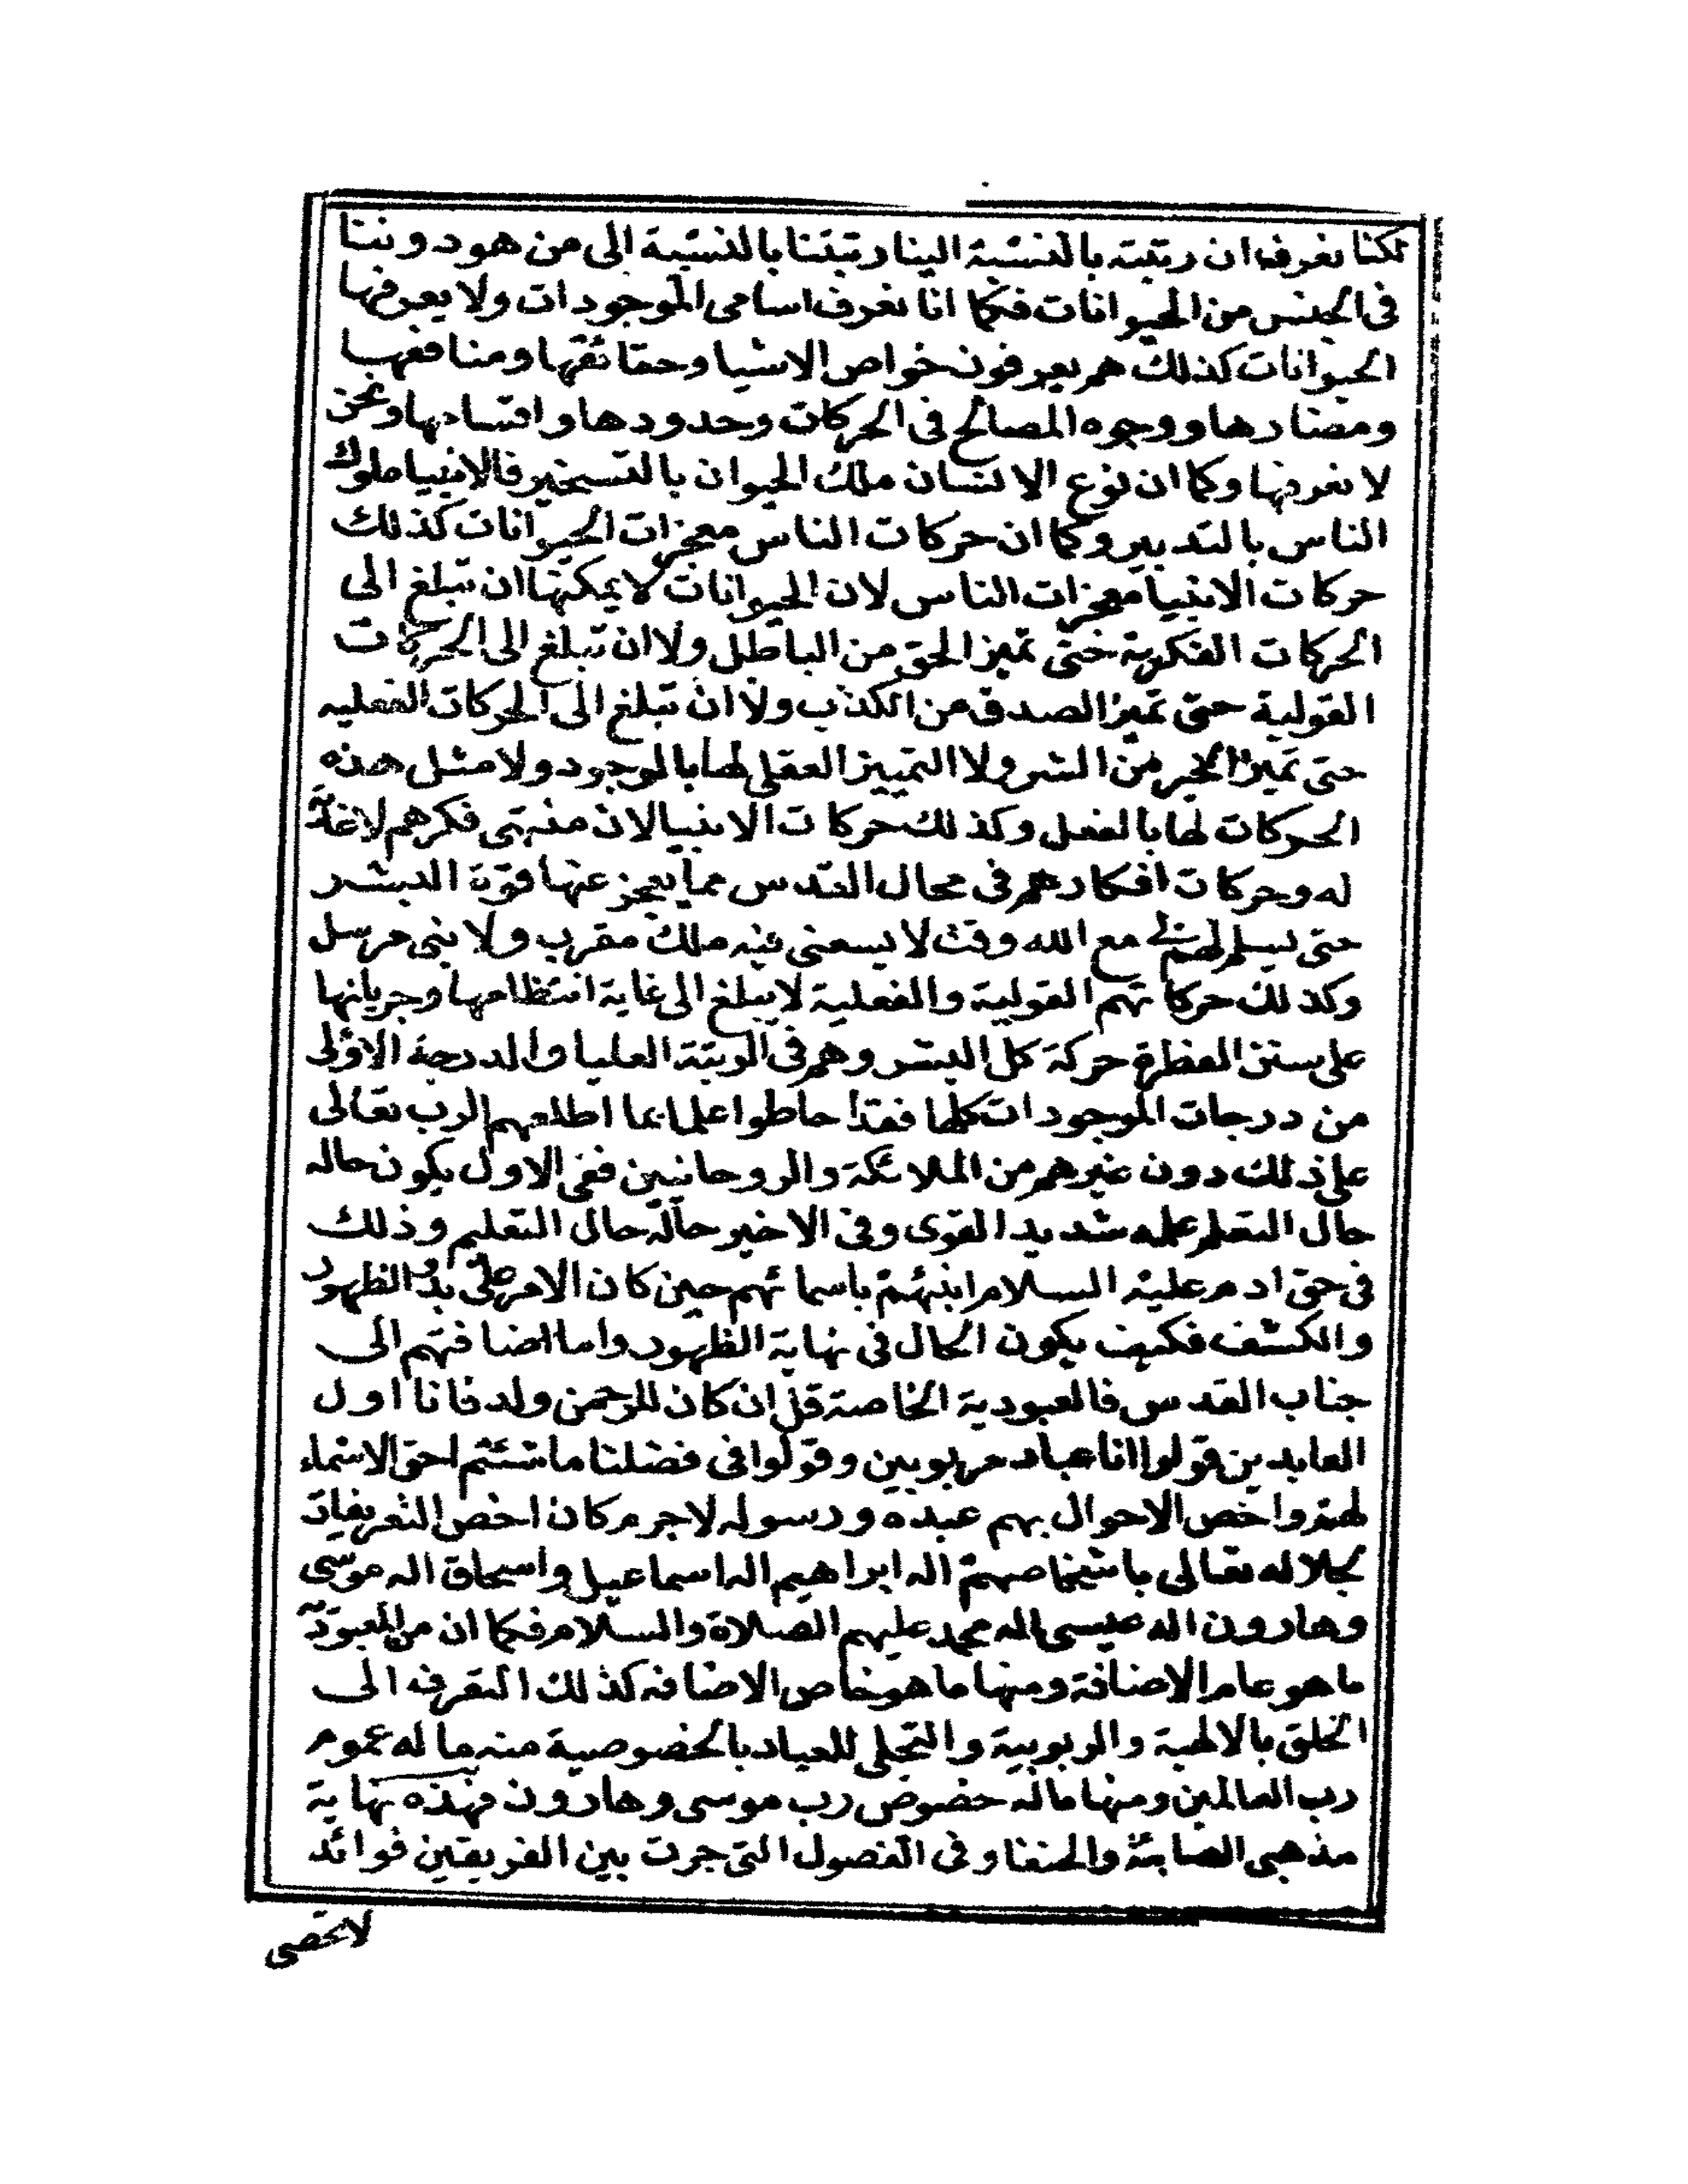 لكنا نعرف ان رتبته بالنسبة الينا رتبتنا بالنسبة الى من هو دوننا
فى الجنس من الحيوانات فكما انا نعرف اسامى الموجودات ولا يعرفها
الحيوانات كذلك هم يعرفون خواص الاشيا وحقائقها ومنافعها
ومضارها ووجوه المصالح فى الحركات وحدودها واقسامها ونحن
لا نعرفها وكما ان نوع الانسان ملك الحيوان بالتسخير فالانبيا ملوك
الناس بالتدبير وكما ان حركات الناس معجزات الحيوانات كذلك
حركات الانبيا معجزات الناس لان الحيوانات لا يمكنها ان تبلغ الى
الحركات الفكرية حتى تميز الحق من الباطل ولا ان تبلغ الى الحركات
القولية حتى تميز الصدق من الكذب ولا ان تبلغ الى الحركات الفعليه
حتى تميز الخير من الشر ولا التمييز العقلى لها بالموجود ولا مثل هذه
الحركات لها بالفعل وكذلك حركات الانبيا لان منتهى فكرهم لا غاية
له وحركات افكارهم فى محال القدس مما يعجز عنها قوة البشر
حتى يسلم لهم لى مع الله وقت لا يسعنى فيه ملك مقرب ولا نبى مرسل
وكذلك حركاتهم القولية والفعلية لا يبلغ الى غاية انتظامها وجريانها
على سنن الفطرة حركة كل البشر وهم فى الرتبة العليا والدرجة الاولى
من درجات الموجودات كلها فقد احاطوا علما بما اطلعهم الرب تعالى
على ذلك دون غيرهم من الملائكة والروحانيين ففى الاول يكون حاله
حال التعلم علمه شديد القوى وفى الاخير حاله حال التعليم وذلك
فى حق ادم عليه السلام انبئهم باسمائهم حين كان الامر على بدو الظهور
والكشف فكيف يكون الحال فى نهاية الظهور واما اضافتهم الى
جناب القدس فالعبودية الخاصة قل ان كان للرحمن ولد فانا اول
العابدين قولوا انا عباد مربوبين وقولوا فى فضلنا ما شئتم احق الاسماء
لهم واخص الاحوال بهم عبده ورسوله لاجرم كان اخص التعريفات
لجلاله تعالى باشخاصهم اله ابراهيم اله اسماعيل واسحاق اله موسى
وهارون اله عيسى اله محمد عليهم الصلاة والسلام فكما ان من العبودية
ما هو عام الاضافة ومنها ما هو خاص الاضافه كذلك التعرف الى
الخلق بالالهية والربوبية والتجلى للعباد بالخصوصية منه ما له عموم
رب العالمين ومنها ماله خصوص رب موسى وهارون فهذه نهاية
مذهبى الصابئة والحنفا وفى الفصول التى جرت بين الفريقين فوائد
لا تحصى